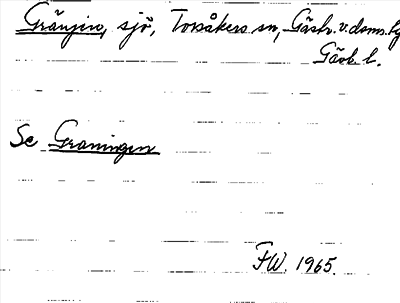 Gränjen, sjö, Torsåkers sn, Gästr. v. doms.
Gävl. l.
Se Graningen
FW. 1965.